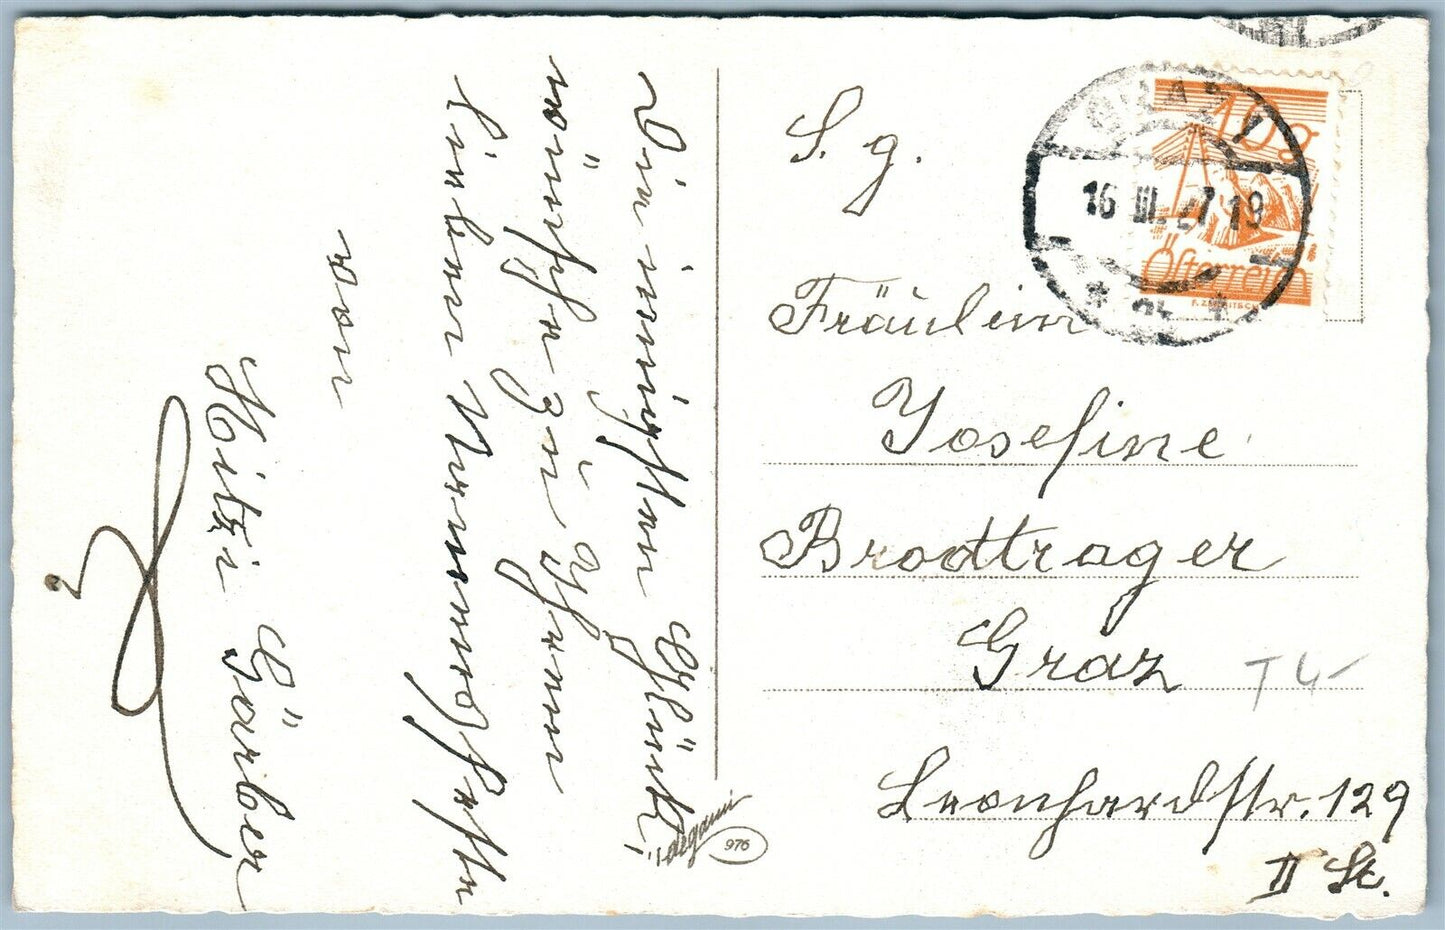 Die innigsten Glück-
wünsche zu Ihrem
lieben Namensfeste
von
Mitzi Gärber
S. g.
Fräulein
Josefine
Brodtrager
Graz
Leonhardstr. 129
II St.
T 4-
10 g
Österreich
GRAZ 1
16 III. 27 19
degami
976